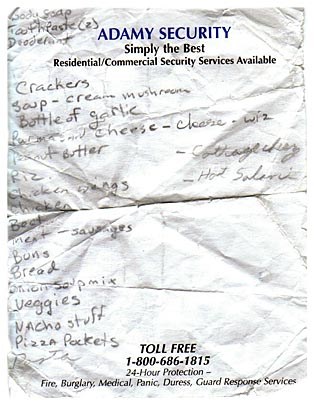 Body soap
Toothpaste (2)
Deoderant
ADAMY SECURITY
Simply the Best
Residential/Commercial Security Services Available
Crackers
Soup - cream mushroom
Bottle of garlic
Cheese - cheese - wiz
Peanut butter - Cottage chez
- Hot Salami
Chicken wings
Chicken
Beef
meat - sausages
Buns
Bread
onion soup mix
Veggies
NAcho stuff
PIZZA Pockets
Pasta
TOLL FREE
1-800-686-1815
24-Hour Protection –
Fire, Burglary, Medical, Panic, Duress, Guard Response Services